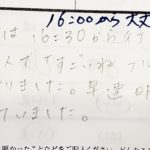 16:00から丈
は16:30から行
んですごいね フル
りました。早速明
ていました。
困ったことなどをご記入ください。どんなことで